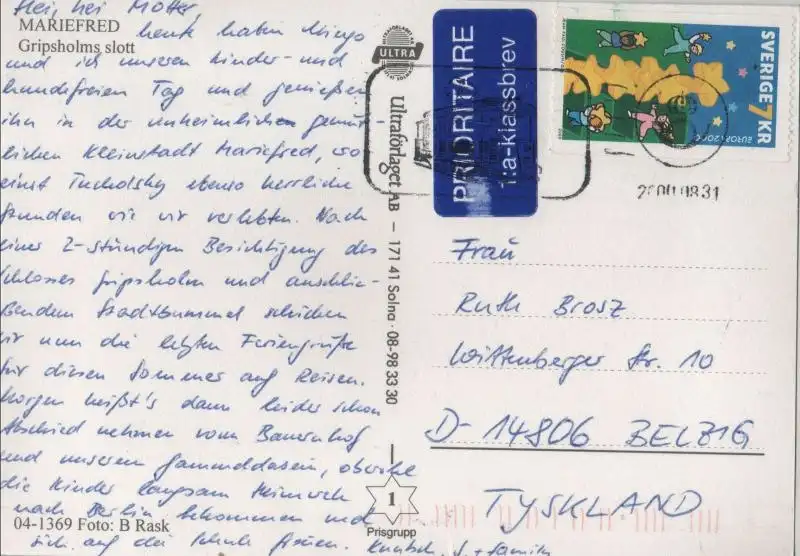 Hei, hei Motter,
MARIEFRED
Gripsholms slott
heute haben
und ich unseren kinder- und
hundefreien Tag und genießen
ihn in der unheimlichen gemüt-
lichen Kleinstadt Mariefred, wo
einst Tucholsky ebenso herrliche
Stunden wie wir verlebten. Nach
einer 2-stündigen Besichtigung des
Schlosses Gripsholm und anschlie-
ßendem Stadtbummel schicken
wir nun die letzten Feriengrüße
für diesen Sommer auf Reisen.
Morgen heißt's dann leider schon
Abschied nehmen vom Bauernhof
und unserem Gammeldasein, obwohl
die Kinder langsam Heimweh
nach Berlin bekommen und
sich auf die Schule freuen. S. + Familie
04-1369 Foto: B Rask
ULTRA
Ultraförlaget AB — 171 41 Solna · 08-98 33 30
1
Prisgrupp
PRIORITAIRE
1:a-klassbrev
SVERIGE 7KR
EUROPA 2000
2000 08 31
Frau
Ruth Brosz
Wittenberger Str. 10
D-14806 BELZIG
TYSKLAND